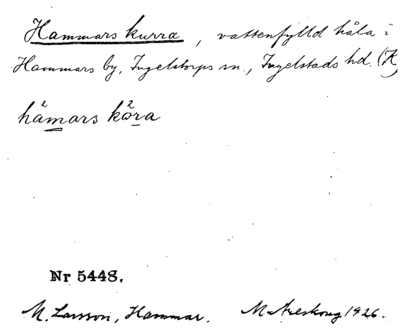 Hammars kurra, vattenfylld håla i
Hammars by, Ingelstorps sn., Ingelstads hd. (K)
hämars kåra
Nr 5448.
M. Larsson, Hammar. M. Areskoug 1926.